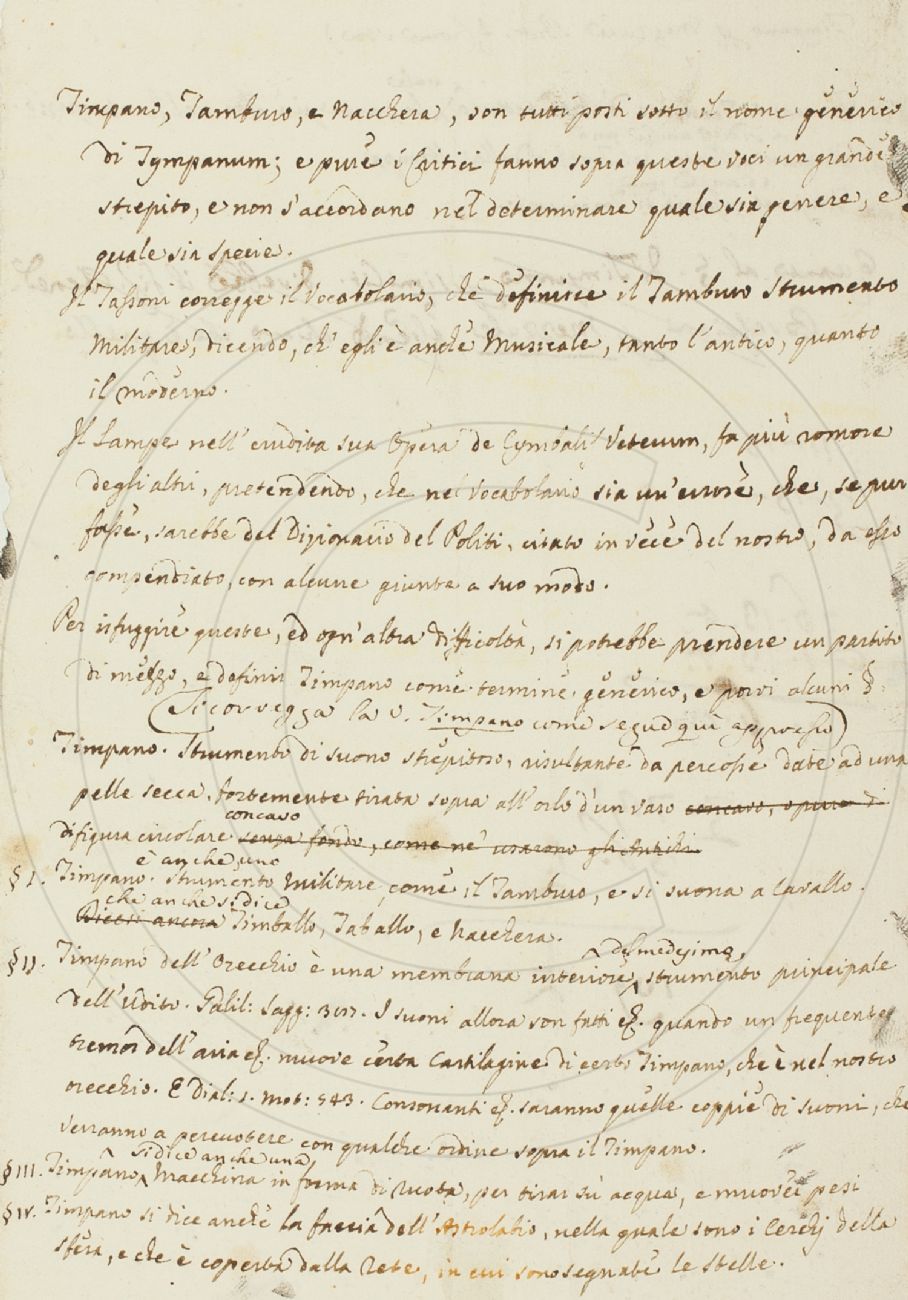 Timpano, Tamburo, e Nacchera, son tutti posti sotto il nome generico
di Tympanum; e pure i Critici fanno sopra queste voci un grande
strepito, e non s'accordano nel determinare quale sia genere, e
quale sia specie.
Il Tassoni corregge il Vocabolario, che definisce il Tamburo strumento
Militare, dicendo, ch'egli è anche Musicale, tanto l'antico, quanto
il moderno.
Il Lampe nell'erudita sua Opera de Cymbalis Veterum, fa più romore
degli altri, pretendendo, che nel Vocabolario sia un'errore, che, se pur
fosse, sarebbe del Dizionario del Politi, citato in vece del nostro, da esso
compendiato, con alcune giunte a suo modo.
Per isfuggire queste, ed ogn'altra difficoltà, si potrebbe prendere un partito
di mezzo, e definir Timpano come termine generico, e porvi alcuni §.
(Si corregga la V. Timpano come segue qui appresso)
Timpano. Strumento di suono strepitoso, risultante da percosse date ad una
pelle secca, fortemente tirata sopra all'orlo d'un vaso concavo, opure di
concavo
di figura circolare senza fondo, come ne usarono gli Antichi.
è anche uno
§ I. Timpano. strumento Militare come il Tamburo, e si suona a Cavallo.
che anche si dice
Dicesi ancora Timballo, Taballo, e Nacchera.
del medesimo,
§ II. Timpano dell'Orecchio è una membrana interiore, strumento principale
dell'Udito. Galil: Sagg: I suoni allora son fatti &. quando un frequente
tremor dell'aria &. muove certa Cartilagine di certo Timpano, che è nel nostro
orecchio. E Dial: s. Mot: 543. Consonanti &. saranno quelle coppie di suoni, che
verranno a percuotere con qualche ordine sopra il Timpano.
si dice anche una
§ III. Timpano, Macchina in forma di Ruota, per tirar sù acqua, e muover pesi
§ IV. Timpano si dice anche la faccia dell'Astrolabio, nella quale sono i Cerchj della
sfera, e che è coperta dalla Rete, in cui sono segnate le stelle.